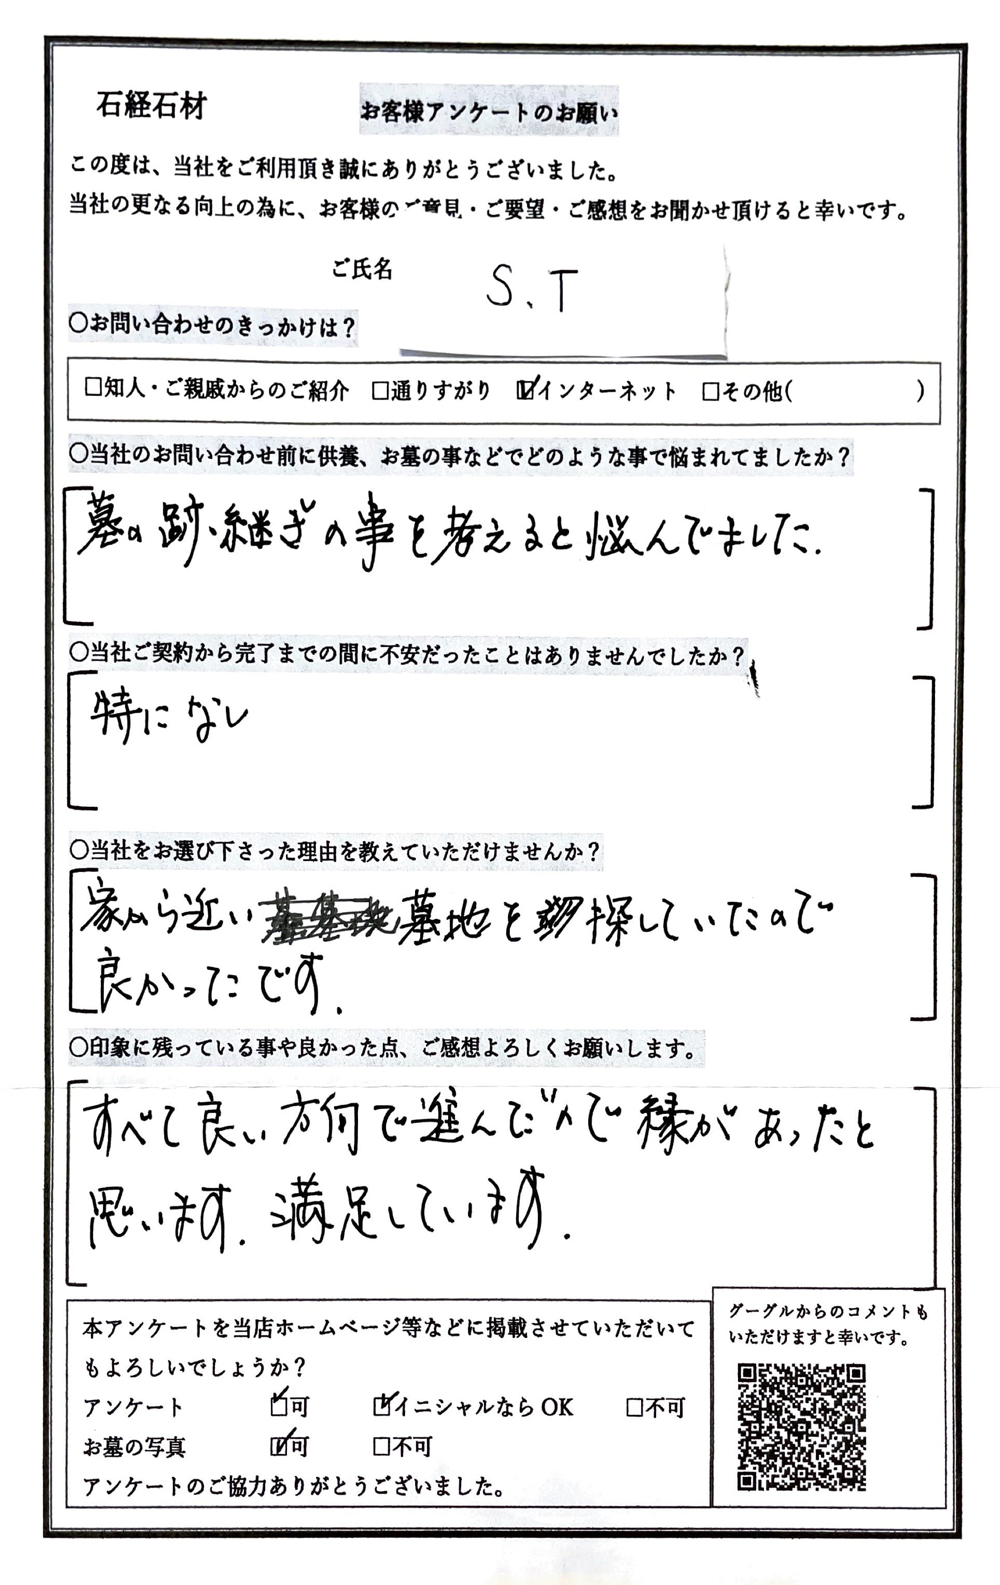 石経石材
お客様アンケートのお願い
この度は、当社をご利用頂き誠にありがとうございました。
当社の更なる向上の為に、お客様のご意見・ご要望・ご感想をお聞かせ頂けると幸いです。
ご氏名 S.T
〇お問い合わせのきっかけは？
□知人・ご親戚からのご紹介 □通りすがり ☑インターネット □その他( )
〇当社のお問い合わせ前に供養、お墓の事などでどのような事で悩まれてましたか？
墓の跡継ぎの事を考えると悩んでました.
〇当社ご契約から完了までの間に不安だったことはありませんでしたか？
特になし
〇当社をお選び下さった理由を教えていただけませんか？
家から近い墓地を探していたので
良かったです.
〇印象に残っている事や良かった点、ご感想よろしくお願いします。
すべて良い方何で進んだので縁があったと
思います.満足しています.
本アンケートを当店ホームページ等などに掲載させていただいて
もよろしいでしょうか？
アンケート ☑可 ☑イニシャルなら OK □不可
お墓の写真 ☑可 □不可
アンケートのご協力ありがとうございました。
グーグルからのコメントも
いただけますと幸いです。